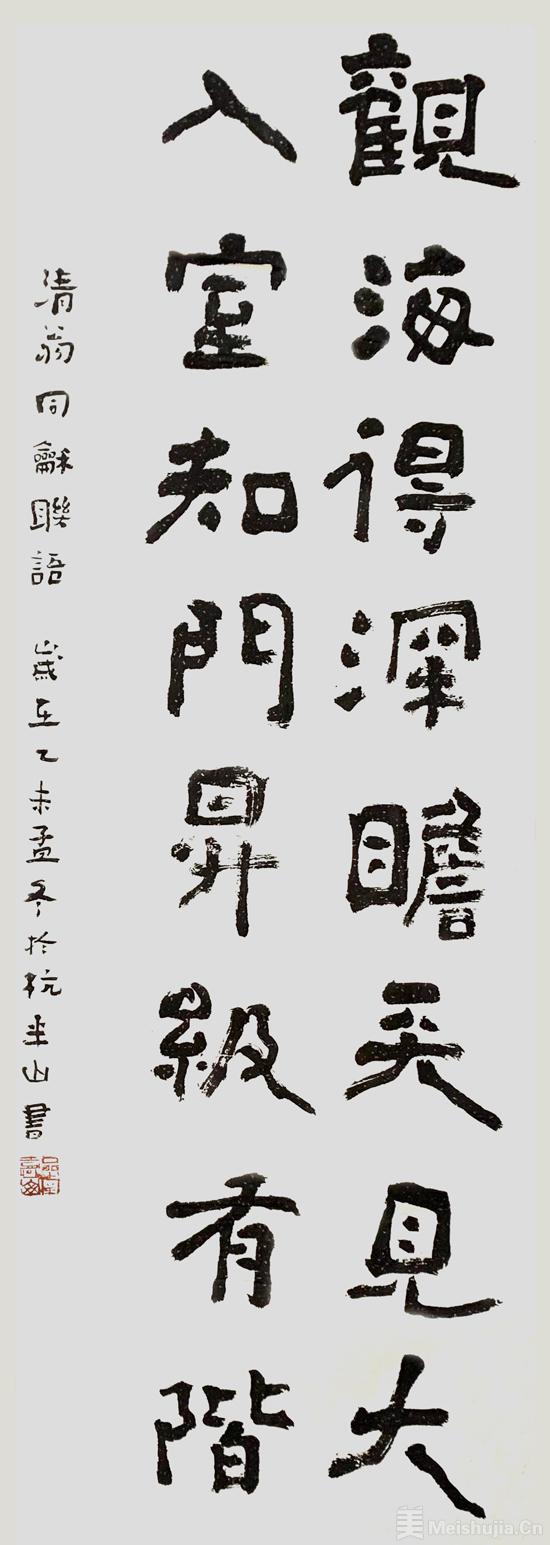 觀海得深瞻天見大
入室知門昇級有階
清翁同龢聯語 歲在乙未孟冬於杭半山書
美 Meishujia.Cn